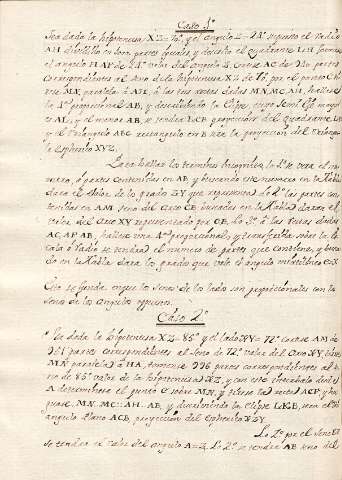 Caso 1º
Sea dada la hipotenusa XZ= 76° y el angulo Z= 24° supuesto el radio
AH dividido en 1000 partes iguales, y descrito el Quadrante LCH formese
el angulo HAF de 24° valor del angulo Z. Cortese AC de 970 partes
correspondientes al seno de la hipotenusa XZ de 76, por el punto C tire
se MN, paralela à AH, à las tres rectas dadas MN, MC, AH, hallese
la 4ª proporcional AB, y descubriendo la Elipse, cuyo semi Exe mayor
es AL, y el menor AB, se tendrá LCB proyeccion del quadrante
y el triangulo ABC rectangulo en B será la proyeccion del triangu
lo espherico XYZ.
Para hallar los terminos incognitos, lo 1º se verá el nu
mero, ó partes contenidas en AB, y buscando este numero en la tabla
dará el valor de los grados ZY que representa
tenidas en AM, seno del arco CB, buscadas en la tabla darán el
valor del arco XY representado por CB, lo 3º à las rectas dadas
AC, AF, AB, hallese una 4ª proporcional, y transfierase sobre la es
cala ó radio se tendrá el numero de partes que contiene, y busca
do en la tabla dará los grados que vale el angulo
Esto se funda en que los senos de los lados son proporcionales con los
senos de los angulos opuestos.
Caso 2º
Sea dada la hipotenusa XZ= 85° y el lado XY= 72° cortese AM de
951 partes correspondientes al seno de 72° valor del arco XY tirese
MN paralela à HA, tomense 996 partes correspondientes al se
no de 85° valor de la hipotenusa XZ, y con este intervalo desde
A determinese el punto C sobre MN, y tirese la recta ACF, y bus
quese MN. MC:: AH. AB, y descubriendo la Elipse LCB, será el tri
angulo plano ACB, proyeccion del espherico XZY.
Lo 1º por el seno
se tendrá el valor del angulo A=Z. Lo 2º se tendrá AB seno del